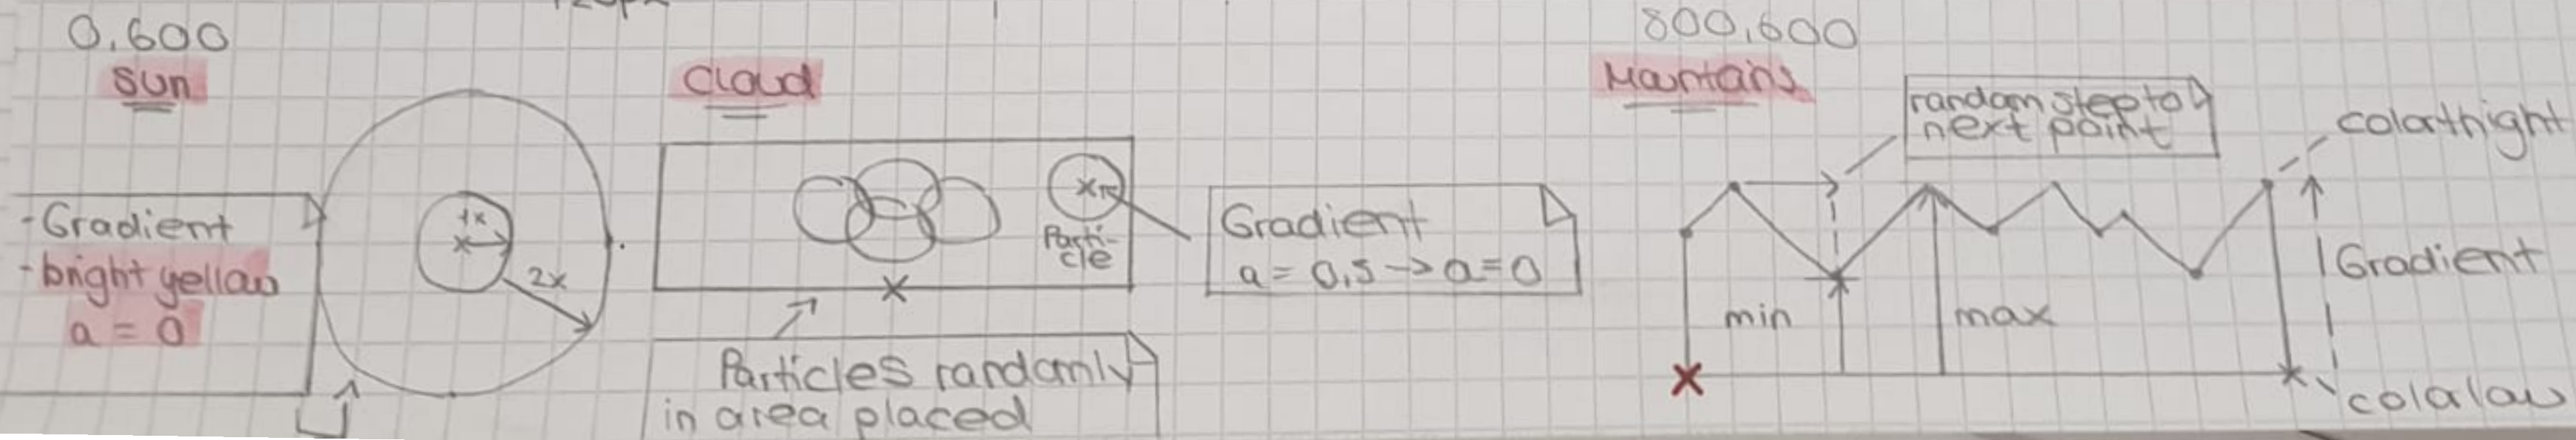 0,600
Sun
- Gradient
- bright yellow
a = 0
1x
2x
Cloud
Parti-
cle
Gradient
a = 0,5 -> a = 0
Particles randomly
in area placed
800,600
Mountains
random step to
next point
min
max
colorhight
Gradient
colorlow